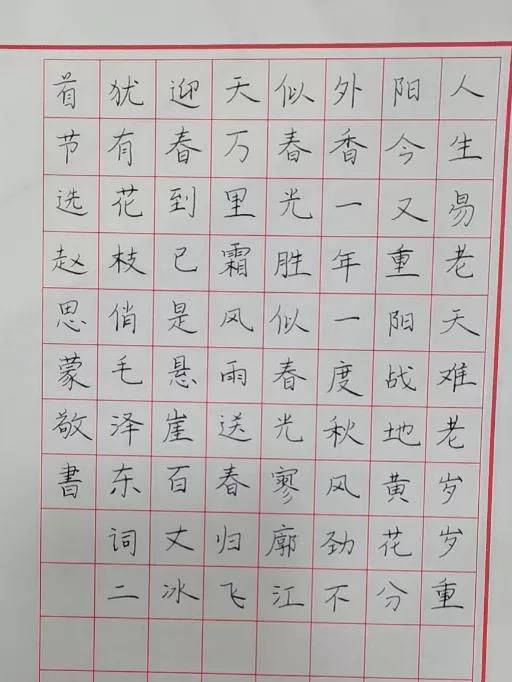 人生易老天难老岁岁重
阳今又重阳战地黄花分
外香一年一度秋风劲不
似春光胜似春光寥廓江
天万里霜风雨送春归飞
迎春到已是悬崖百丈冰
犹有花枝俏毛泽东词二
首节选赵思蒙敬書